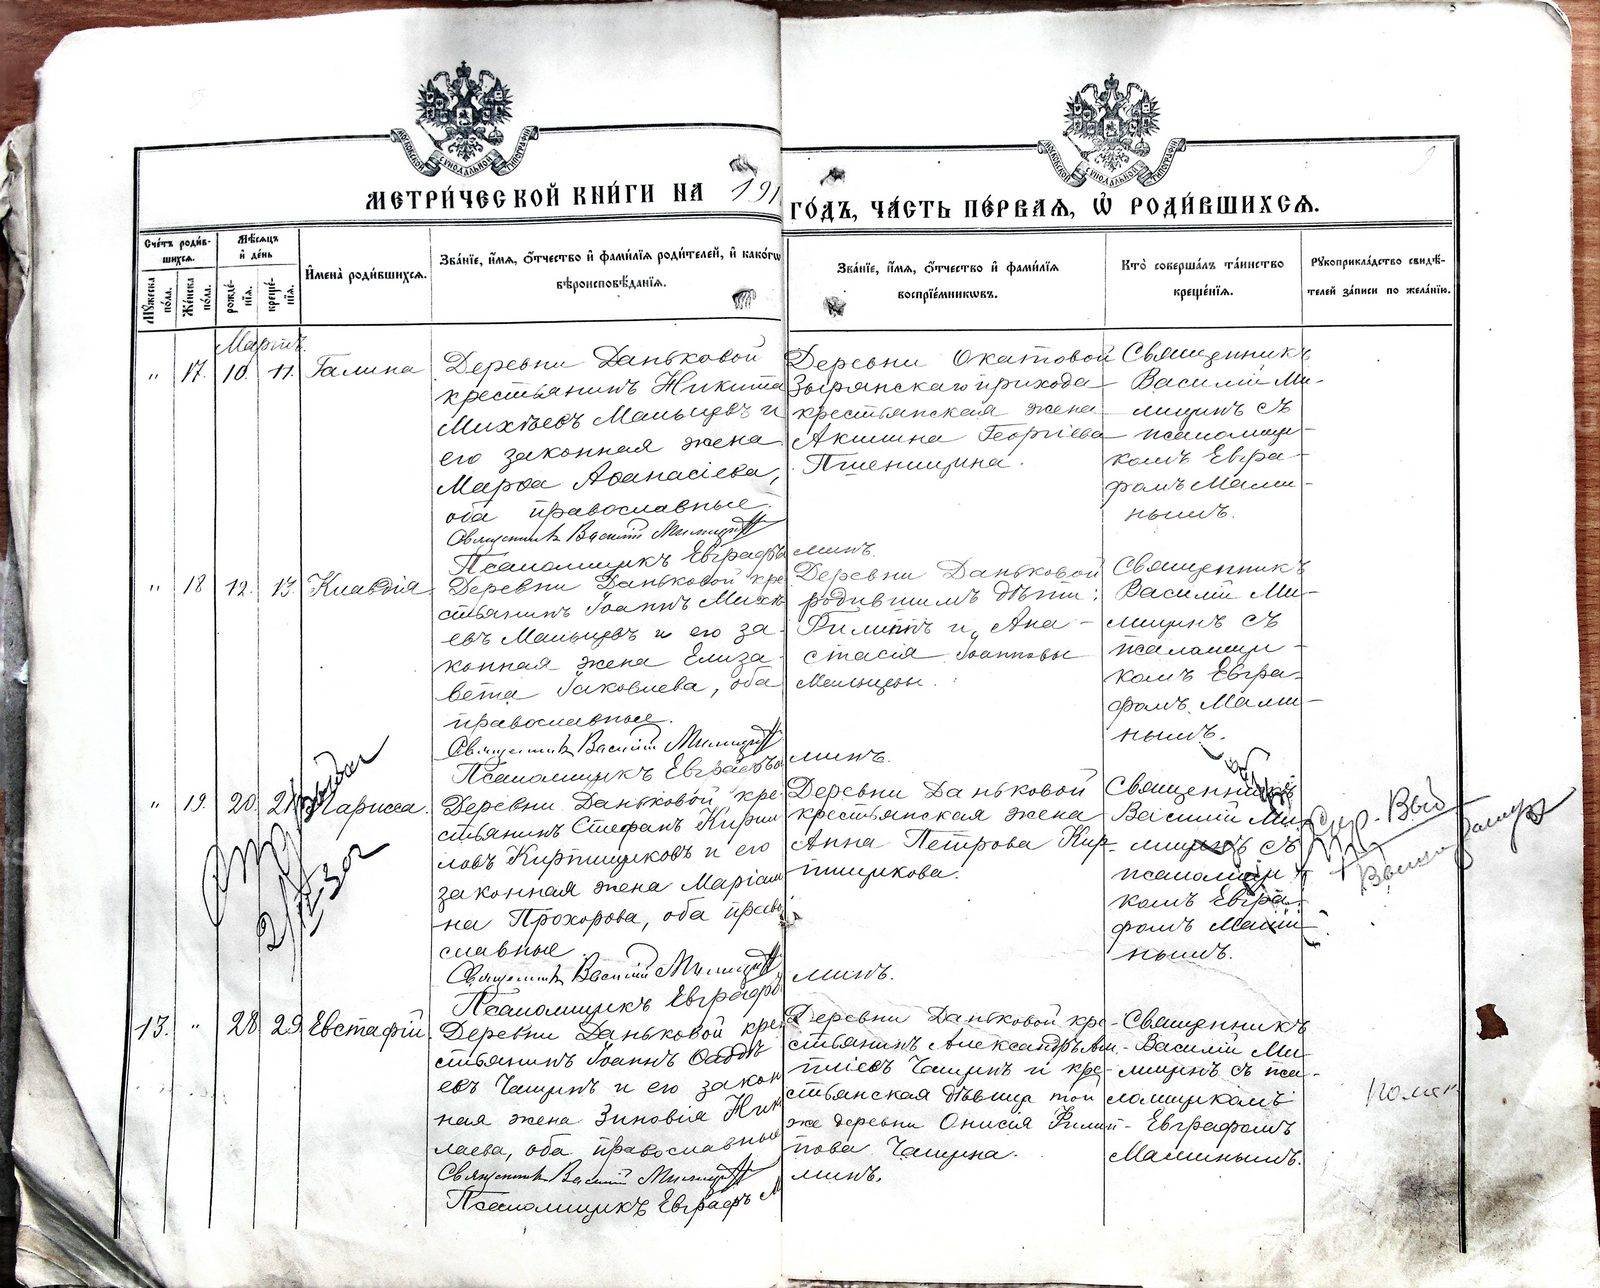 МОСКОВСКОЙ СѴНОДАЛЬНОЙ ТИПОГРАФІИ
МОСКОВСКОЙ СѴНОДАЛЬНОЙ ТИПОГРАФІИ
МЕТРИ́ЧЕСКОЙ КНИ́ГИ НА 191
ГО́ДЪ, ЧА́СТЬ ПЕ́РВАЯ, Ѡ РОДИ́ВШИХСЯ.
Сче́тъ роди́в-
шихся.
Мꙋ́жеска по́ла.
Же́нска по́ла.
Мѣ́сяцъ
и де́нь
рожде́-
нїя.
креще́-
нїя.
И҆мена̀ роди́вшихся.
Зва́нїе, и҆́мя, ѻ҆́тчество и҆ фами́лїя роди́телей, и҆ како́гѡ
вѣроисповѣ́данїя.
Зва́нїе, и҆́мя, ѻ҆́тчество и҆ фами́лїя
воспрїе́мникѡвъ.
Кто̀ соверша́лъ та́инство
креще́нїя.
Рꙋкоприкла́дство свидѣ́-
телей за́писи по жела́нїю.
Мартъ.
" 17. 10. 11. Галина
Деревни Даньковой
крестьянинъ Никита
Михѣевъ Мальцевъ и
его законная жена
Марѳа Аѳанасіева,
оба православные.
Священникъ Василій Милицинъ
Псаломщикъ Евграфъ Ма
Деревни Окатовой
Зырянскаго прихода
крестьянская жена
Акилина Георгіева
Пшеницина.
линъ.
Священникъ
Василій Ми-
лицинъ съ
псаломщи-
комъ Евгра-
фомъ Мали-
нымъ.
" 18 12. 13. Клавдія
Деревни Даньковой кре
стьянинъ Іоаннъ Михѣ
евъ Мальцевъ и его за-
конная жена Елиза-
вета Іаковлева, оба
православные.
Священникъ Василій Милицинъ
Псаломщикъ Евграфъ Ма
Деревни Даньковой
родившимъ дѣти:
Филиппъ и Ана-
стасія Іоанновы
Мальцевы.
линъ.
Священникъ
Василій Ми-
лицинъ съ
псаломщи-
комъ Евгра-
фомъ Мали-
нымъ.
" 19. 20. 21. Ларисса.
Деревни Даньковой кре-
стьянинъ Стефанъ Кирил
ловъ Кирпищиковъ и его
законная жена Маріам
на Прохорова, оба право
славные
Священникъ Василій Милицинъ
Псаломщикъ Евграфъ Ма
Деревни Даньковой
крестьянская жена
Анна Петрова Кир-
пищикова.
линъ.
Священникъ
Василій Ми-
лицинъ съ
псаломщи-
комъ Евгра-
фомъ Мали-
нымъ.
13. " 28. 29. Евстафій.
Деревни Даньковой кре-
стьянинъ Іоаннъ Ѳаддѣ
евъ Чащинъ и его закон
ная жена Зиновія Нико
лаева, оба православные
Священникъ Василій Милицинъ
Псаломщикъ Евграфъ Ма
Деревни Даньковой кре-
стьянинъ Александръ
Чащинъ и кре-
стьянская дѣвица той
же деревни Онисія Филип-
пова Чащина.
линъ.
Священникъ
Василій Ми-
лицинъ съ пса-
ломщикомъ
Евграфомъ
Малинымъ.